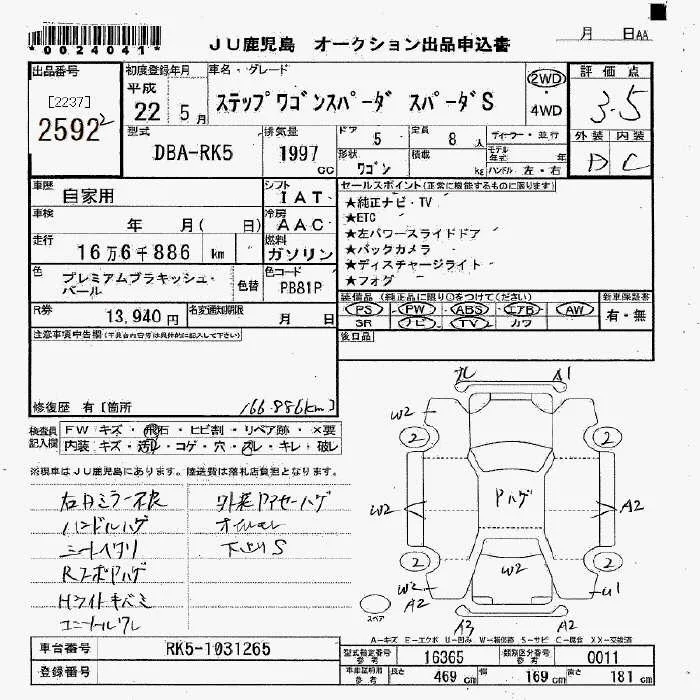 *0024041*
JU鹿児島 オークション出品申込書
月 日AA
出品番号
[2237]
2592 2
初度登録年月
平成
22 5月
車名・グレード
ステップワゴンスパーダ スパーダS
2WD
・
4WD
評価点
3.5
型式
DBA-RK5
排気量
1997
CC
ドア
5
定員
8人
形状
ワゴン
積載
kg
ディーラー・並行
モデル
年式 年
ハンドル 左・右
外装 内装
D C
車歴
自家用
シフト
IAT
車検
年 月( 日)
冷房
AAC
走行
16万6千886 km
燃料
ガソリン
色
プレミアムブラキッシュ・
パール
色替
色コード
PB81P
R券
13,940円
名変通知期限
月 日
セールスポイント(正常に機能するものに限ります)
★純正ナビ・TV
★ETC
★左パワースライドドア
★バックカメラ
★ディスチャージライト
★フォグ
装備品(純正品に限り○をつけてください)
PS PW ABS エアB AW
SR ナビ TV カワ
新車保証書
有・無
後日品
注意事項申告欄(不具合内容等は具体的に記入して下さい)
修復歴 有[箇所
166.886km]
検査員
記入欄
FW キズ・飛石・ヒビ割・リペア跡・×要
内装 キズ・汚レ・コゲ・穴・スレ・キレ・破レ
※現車はJU鹿児島にあります。陸送費は落札店負担となります。
ハンドルハゲ
オイルモレ
下より S
W2
A1
2
2
W2
Pハゲ
A2
2
2
W2
W2
A2
U1
A2
スペア
A-キズ E-エクボ U-凹み W-補修跡 S-サビ C-腐食 XX-交換済
車台番号
RK5-1031265
登録番号
型式指定番号
参考
16365
類別区分番号
参考
0011
車庫証明用
参考
長さ 469 cm 幅 169 cm 高さ 181 cm